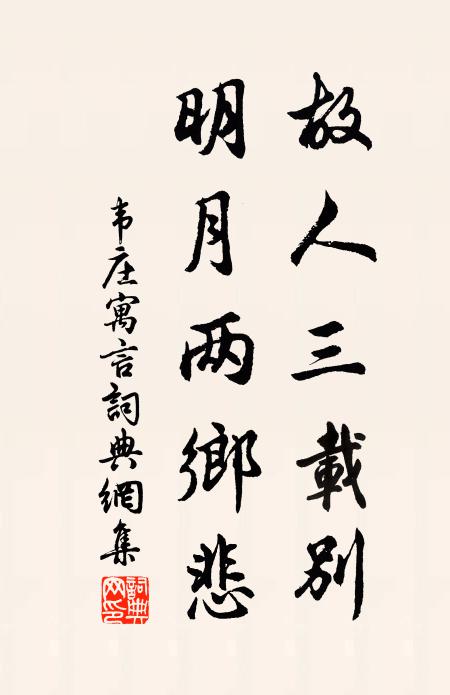 故人三載别
明月两鄉悲
韦庄寓言詞典網集
詞典网印